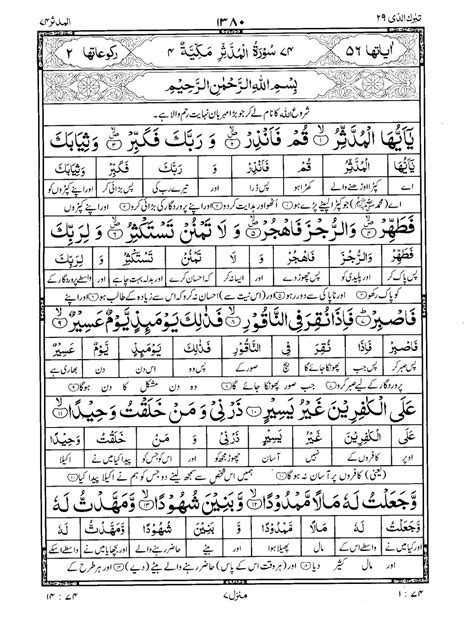 تبٰرك الذى ٢٩ ١٣٨٠ المدثر ٧٤
اٰیاتها ٥٦ ٧٤ سُوۡرَةُ الۡمُدَّثِّرِ مَكِّيَّةٌ ٤ ركوعاتها ٢
بِسۡمِ اللهِ الرَّحۡمٰنِ الرَّحِيۡمِ
شروع اللہ کا نام لے کر جو بڑا مہربان نہایت رحم والا ہے۔
يٰۤاَيُّهَا الۡمُدَّثِّرُ ۙ﴿١﴾ قُمۡ فَاَنۡذِرۡ ۙ﴿٢﴾ وَ رَبَّكَ فَكَبِّرۡ ۙ﴿٣﴾ وَثِيَابَكَ
يٰۤاَيُّهَا الۡمُدَّثِّرُ قُمۡ فَاَنۡذِرۡ وَ رَبَّكَ فَكَبِّرۡ وَثِيَابَكَ
اے کپڑا اوڑھنے والے کھڑا ہو پس ڈرا اور تیرے رب کی پس بڑائی کر اور اپنے کپڑوں کو
اے (محمدﷺ) جو کپڑا لپیٹے پڑے ہو ﴿١﴾ اٹھو اور ہدایت کردو ﴿٢﴾ اور اپنے پروردگار کی بڑائی کرو ﴿٣﴾ اور اپنے کپڑوں
فَطَهِّرۡ ۙ﴿٤﴾ وَالرُّجۡزَ فَاهۡجُرۡ ۙ﴿٥﴾ وَ لَا تَمۡنُنۡ تَسۡتَكۡثِرُ ۙ﴿٦﴾ وَ لِرَبِّكَ
فَطَهِّرۡ وَالرُّجۡزَ فَاهۡجُرۡ وَ لَا تَمۡنُنۡ تَسۡتَكۡثِرُ وَ لِرَبِّكَ
پس پاک کر اور پلیدی کو پس چھوڑ دے اور ایسا نہ کر کہ احسان کرے اور بدلہ بہت چاہے اور واسطے پروردگار کے
کو پاک رکھو ﴿٤﴾ اور ناپاکی سے دور رہو ﴿٥﴾ اور (اس نیت سے) احسان نہ کرو کہ اس سے زیادہ کے طالب ہو ﴿٦﴾ اور اپنے
فَاصۡبِرۡ ؕ﴿٧﴾ فَاِذَا نُقِرَ فِى النَّاقُوۡرِ ۙ﴿٨﴾ فَذٰلِكَ يَوۡمَئِذٍ يَّوۡمٌ عَسِيۡرٌ ۙ﴿٩﴾
فَاصۡبِرۡ فَاِذَا نُقِرَ فِى النَّاقُوۡرِ فَذٰلِكَ يَوۡمَئِذٍ يَّوۡمٌ عَسِيۡرٌ
پس صبر کر پس جب پھونکا جائے گا بیچ صور کے پس وہ اس دن دن بھاری ہے
پروردگار کے لیے صبر کرو ﴿٧﴾ جب صور پھونکا جائے گا ﴿٨﴾ وہ دن مشکل کا دن ہوگا ﴿٩﴾
عَلَى الۡكٰفِرِيۡنَ غَيۡرُ يَسِيۡرٍ ﴿١٠﴾ ذَرۡنِىۡ وَ مَنۡ خَلَقۡتُ وَحِيۡدًا ۙ﴿١١﴾
عَلَى الۡكٰفِرِيۡنَ غَيۡرُ يَسِيۡرٍ ذَرۡنِىۡ وَ مَنۡ خَلَقۡتُ وَحِيۡدًا
اوپر کافروں کے نہیں آسان چھوڑ مجھ کو اور اس کو جس کو پیدا کیا میں نے اکیلا
(یعنی) کافروں پر آسان نہ ہوگا ﴿١٠﴾ ہمیں اس شخص سے سمجھ لینے دو جس کو ہم نے اکیلا پیدا کیا ﴿١١﴾
وَّ جَعَلۡتُ لَهٗ مَالًا مَّمۡدُوۡدًا ۙ﴿١٢﴾ وَّ بَنِيۡنَ شُهُوۡدًا ۙ﴿١٣﴾ وَّ مَهَّدْتُّ لَهٗ
وَّ جَعَلۡتُ لَهٗ مَالًا مَّمۡدُوۡدًا وَّ بَنِيۡنَ شُهُوۡدًا وَّ مَهَّدْتُّ لَهٗ
اور کیا میں نے واسطے اس کے مال پھیلا ہوا اور بیٹے حاضر رہنے والے اور بچھایا میں نے واسطے اسکے
اور مال کثیر دیا ﴿١٢﴾ اور (ہر وقت اس کے پاس) حاضر رہنے والے بیٹے (دیے) ﴿١٣﴾ اور ہر طرح کے
٧٤ : ١ منزل ٧ ٧٤ : ١٤